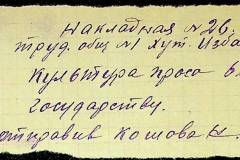 Накладная №26.
труд. общ №1 Хут. Изба
Культура проса в.
государству.
отправив Кошова Н.